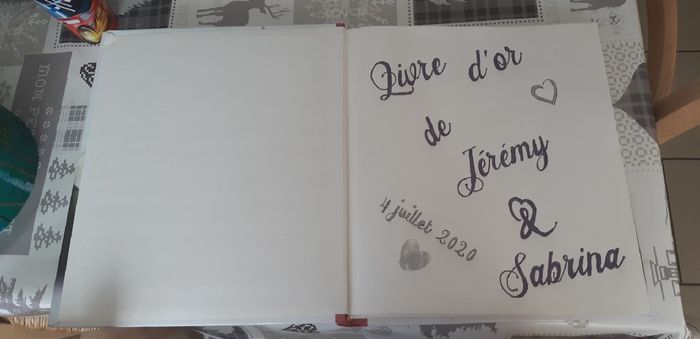 Livre d'or
de
Jérémy
&
Sabrina
4 juillet 2020